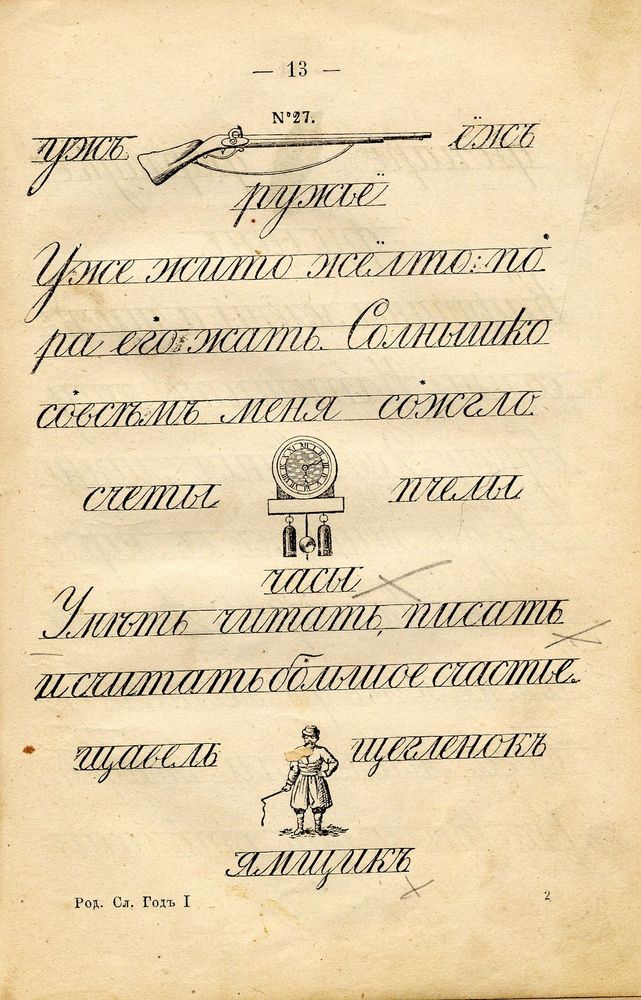 — 13 —
№27.
ужъ ёжъ
ружьё
Уже жито жёлто: по
ра его жать. Солнышко
совсѣмъ меня сожгло
счеты пчелы
часы
Умѣть читать, писать
и считать большое счастье.
щавель щегленокъ
ямщикъ
Род. Сл. Годъ I 2